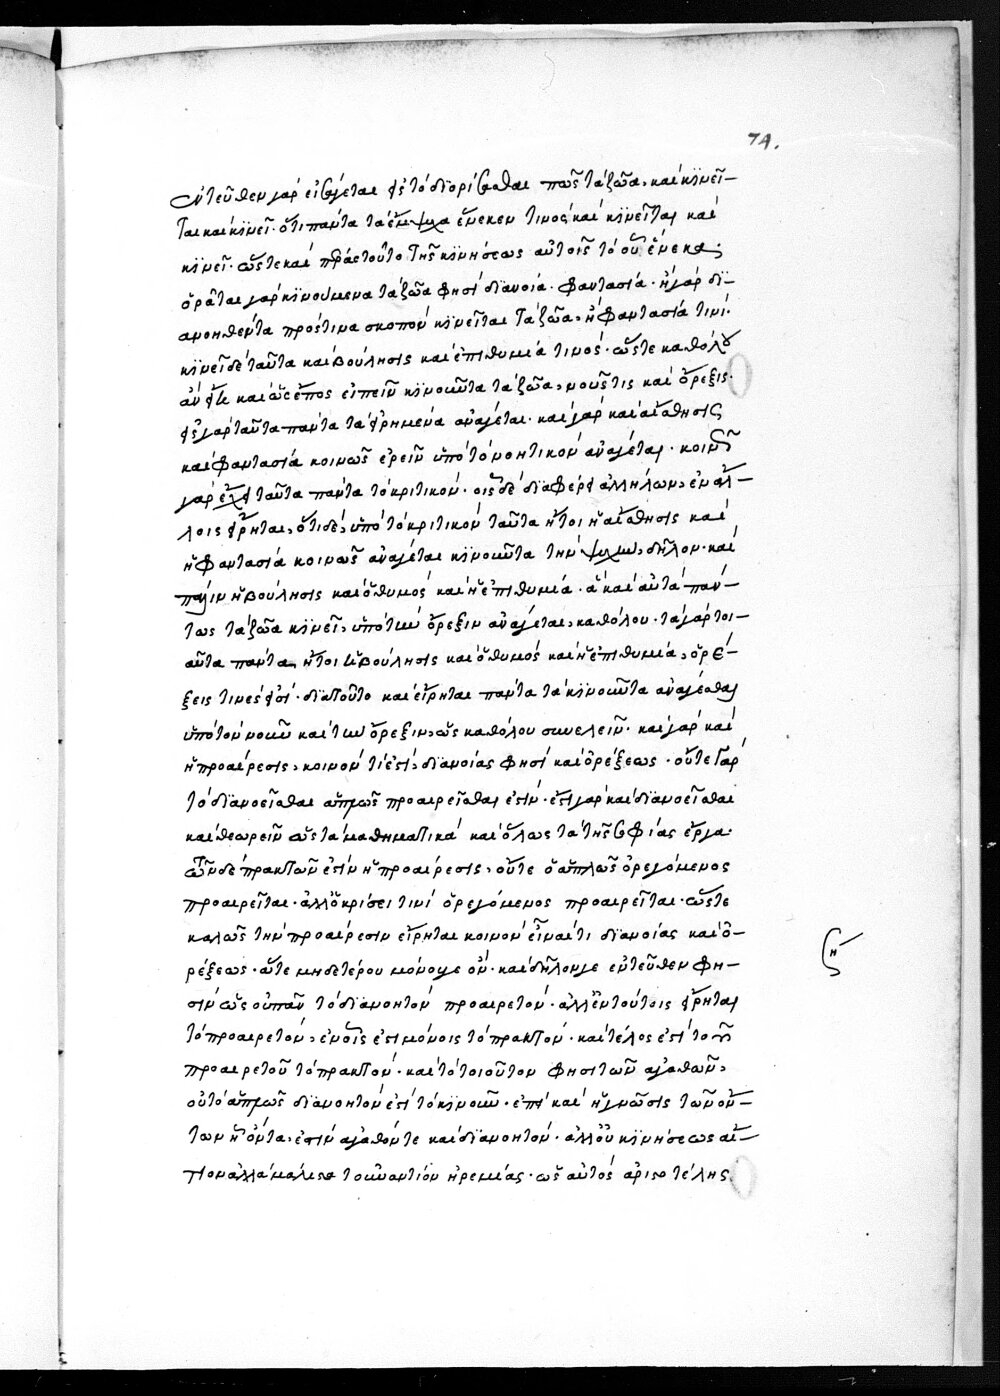 74.
ἐντεῦθεν γὰρ εἰσάγεται εἰς τὸ διορίσασθαι πῶς τὰ ζῶα, καὶ κινεῖ-
ται καὶ κινεῖ. ὅτι πάντα τὰ ἔμψυχα ἕνεκεν τινος καὶ κινεῖται καὶ
κινεῖ. ὥστε καὶ πέρας τοῦτο τῆς κινήσεως αὐτοῖς τὸ οὗ ἕνεκα.
ὁρᾶται γὰρ κινούμενα τὰ ζῶα φησὶ διάνοια. φαντασία. ἢ γὰρ δι-
ανοηθέντα πρός τινα σκοπὸν κινεῖται τὰ ζῶα, ἢ φαντασία τινί.
κινεῖ δὲ ταῦτα καὶ βούλησις καὶ ἐπιθυμία τινός. ὥστε καθόλου
ἂν εἴη καὶ ὡς ἔπος εἰπεῖν κινοῦντα τὰ ζῶα, νοῦς τις καὶ ὄρεξις.
εἰς γὰρ ταῦτα πάντα τὰ εἰρημένα ἀνάγεται. καὶ γὰρ καὶ αἴσθησις
καὶ φαντασία κοινῶς ἐρεῖν ὑπὸ τὸ νοητικὸν ἀνάγεται. κοινῶς
γὰρ ἔχει ταῦτα πάντα τὸ κριτικόν. οἷς δὲ διαφέρει ἀλλήλων, ἐν ἄλ-
λοις εἴρηται, ὅτι δὲ, ὑπὸ τὸ κριτικὸν ταῦτα ἤτοι ἡ αἴσθησις καὶ
ἡ φαντασία κοινῶς ἀνάγεται κινοῦντα τὴν ψυχὴν, δῆλον. καὶ
πάλιν ἡ βούλησις καὶ ὁ θυμὸς καὶ ἡ ἐπιθυμία. ἃ καὶ αὐτὰ πάν-
τως τὰ ζῶα κινεῖ, ὑπὸ τὴν ὄρεξιν ἀνάγεται, καθόλου. τὰ γὰρ τοι-
αῦτα πάντα, ἤτοι ἡ βούλησις καὶ ὁ θυμὸς καὶ ἡ ἐπιθυμία, ὀρέ-
ξεις τινές εἰσι. διὰ τοῦτο καὶ εἴρηται πάντα τὰ κινοῦντα ἀνάγεσθαι
ὑπὸ τὸν νοῦν καὶ τὴν ὄρεξιν, ὡς καθόλου συνελεῖν. καὶ γὰρ καὶ
ἡ προαίρεσις, κοινόν τί ἐστι, διανοίας φησὶ καὶ ὀρέξεως. οὔτε γὰρ
τὸ διανοεῖσθαι ἁπλῶς προαιρεῖσθαι ἐστίν. ἔστι γὰρ καὶ διανοεῖσθαι
καὶ θεωρεῖν ὡς τὰ μαθηματικὰ καὶ ὅλως τὰ τῆς σοφίας ἔργα.
ὧν δὲ πρακτῶν ἐστὶν ἡ προαίρεσις, οὔτε ὁ ἁπλῶς ὀρεγόμενος
προαιρεῖται. ἀλλ' ὁ κρίσει τινὶ ὀρεγόμενος προαιρεῖται. ὥστε
καλῶς τὴν προαίρεσιν εἴρηται κοινὸν εἶναί τι διανοίας καὶ ὀ-
ρέξεως. ἅτε μηδετέρου μόνου γε ὄν. καὶ δῆλόν γε ἐντεῦθεν φη-
σὶν ὡς οὐ πᾶν τὸ διανοητὸν προαιρετόν. ἀλλ' ἐν τούτοις εἴρηται
τὸ προαιρετὸν, ἐν οἷς ἐστι μόνοις τὸ πρακτόν. καὶ τέλος ἐστὶ τοῦ
προαιρετοῦ τὸ πρακτόν. καὶ τὸ τοιοῦτον φησι τῶν ἀγαθῶν,
οὐ τὸ ἁπλῶς διανοητόν ἐστι τὸ κινοῦν. ἐπεὶ καὶ ἡ γνῶσις τῶν ὄν-
των ᾗ ὄντα, ἐστὶν ἀγαθόν τε καὶ διανοητόν. ἀλλ' οὐ κινήσεως αἴ-
τιον ἀλλὰ μάλιστα τοὐναντίον ἠρεμίας. ὡς αὐτὸς ἀριστοτέλης